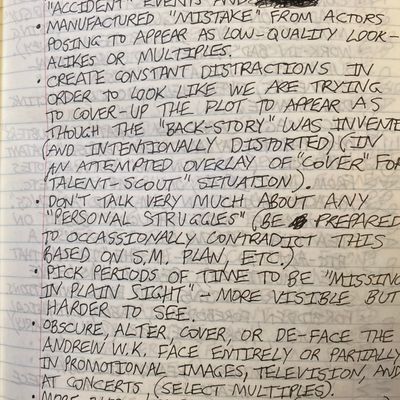 "ACCIDENT" EVENTS AND
• MANUFACTURED "MISTAKE" FROM ACTORS
POSING TO APPEAR AS LOW-QUALITY LOOK-
ALIKES OR MULTIPLES.
• CREATE CONSTANT DISTRACTIONS IN
ORDER TO LOOK LIKE WE ARE TRYING
TO COVER-UP THE PLOT TO APPEAR AS
THOUGH THE "BACK-STORY" WAS INVENTE
(AND INTENTIONALLY DISTORTED) (IN
AN ATTEMPTED OVERLAY OF "COVER" FOR
TALENT-SCOUT" SITUATION).
• DON'T TALK VERY MUCH ABOUT ANY
"PERSONAL STRUGGLES" (BE PREPARED
TO OCCASSIONALLY CONTRADICT THIS
BASED ON S.M. PLAN, ETC.)
• PICK PERIODS OF TIME TO BE "MISSING
IN PLAIN SIGHT" - MORE VISIBLE BUT
HARDER TO SEE.
• OBSCURE, ALTER, COVER, OR DE-FACE THE
ANDREW W.K. FACE ENTIRELY OR PARTIALLY
IN PROMOTIONAL IMAGES, TELEVISION, AND
AT CONCERTS (SELECT MULTIPLES).